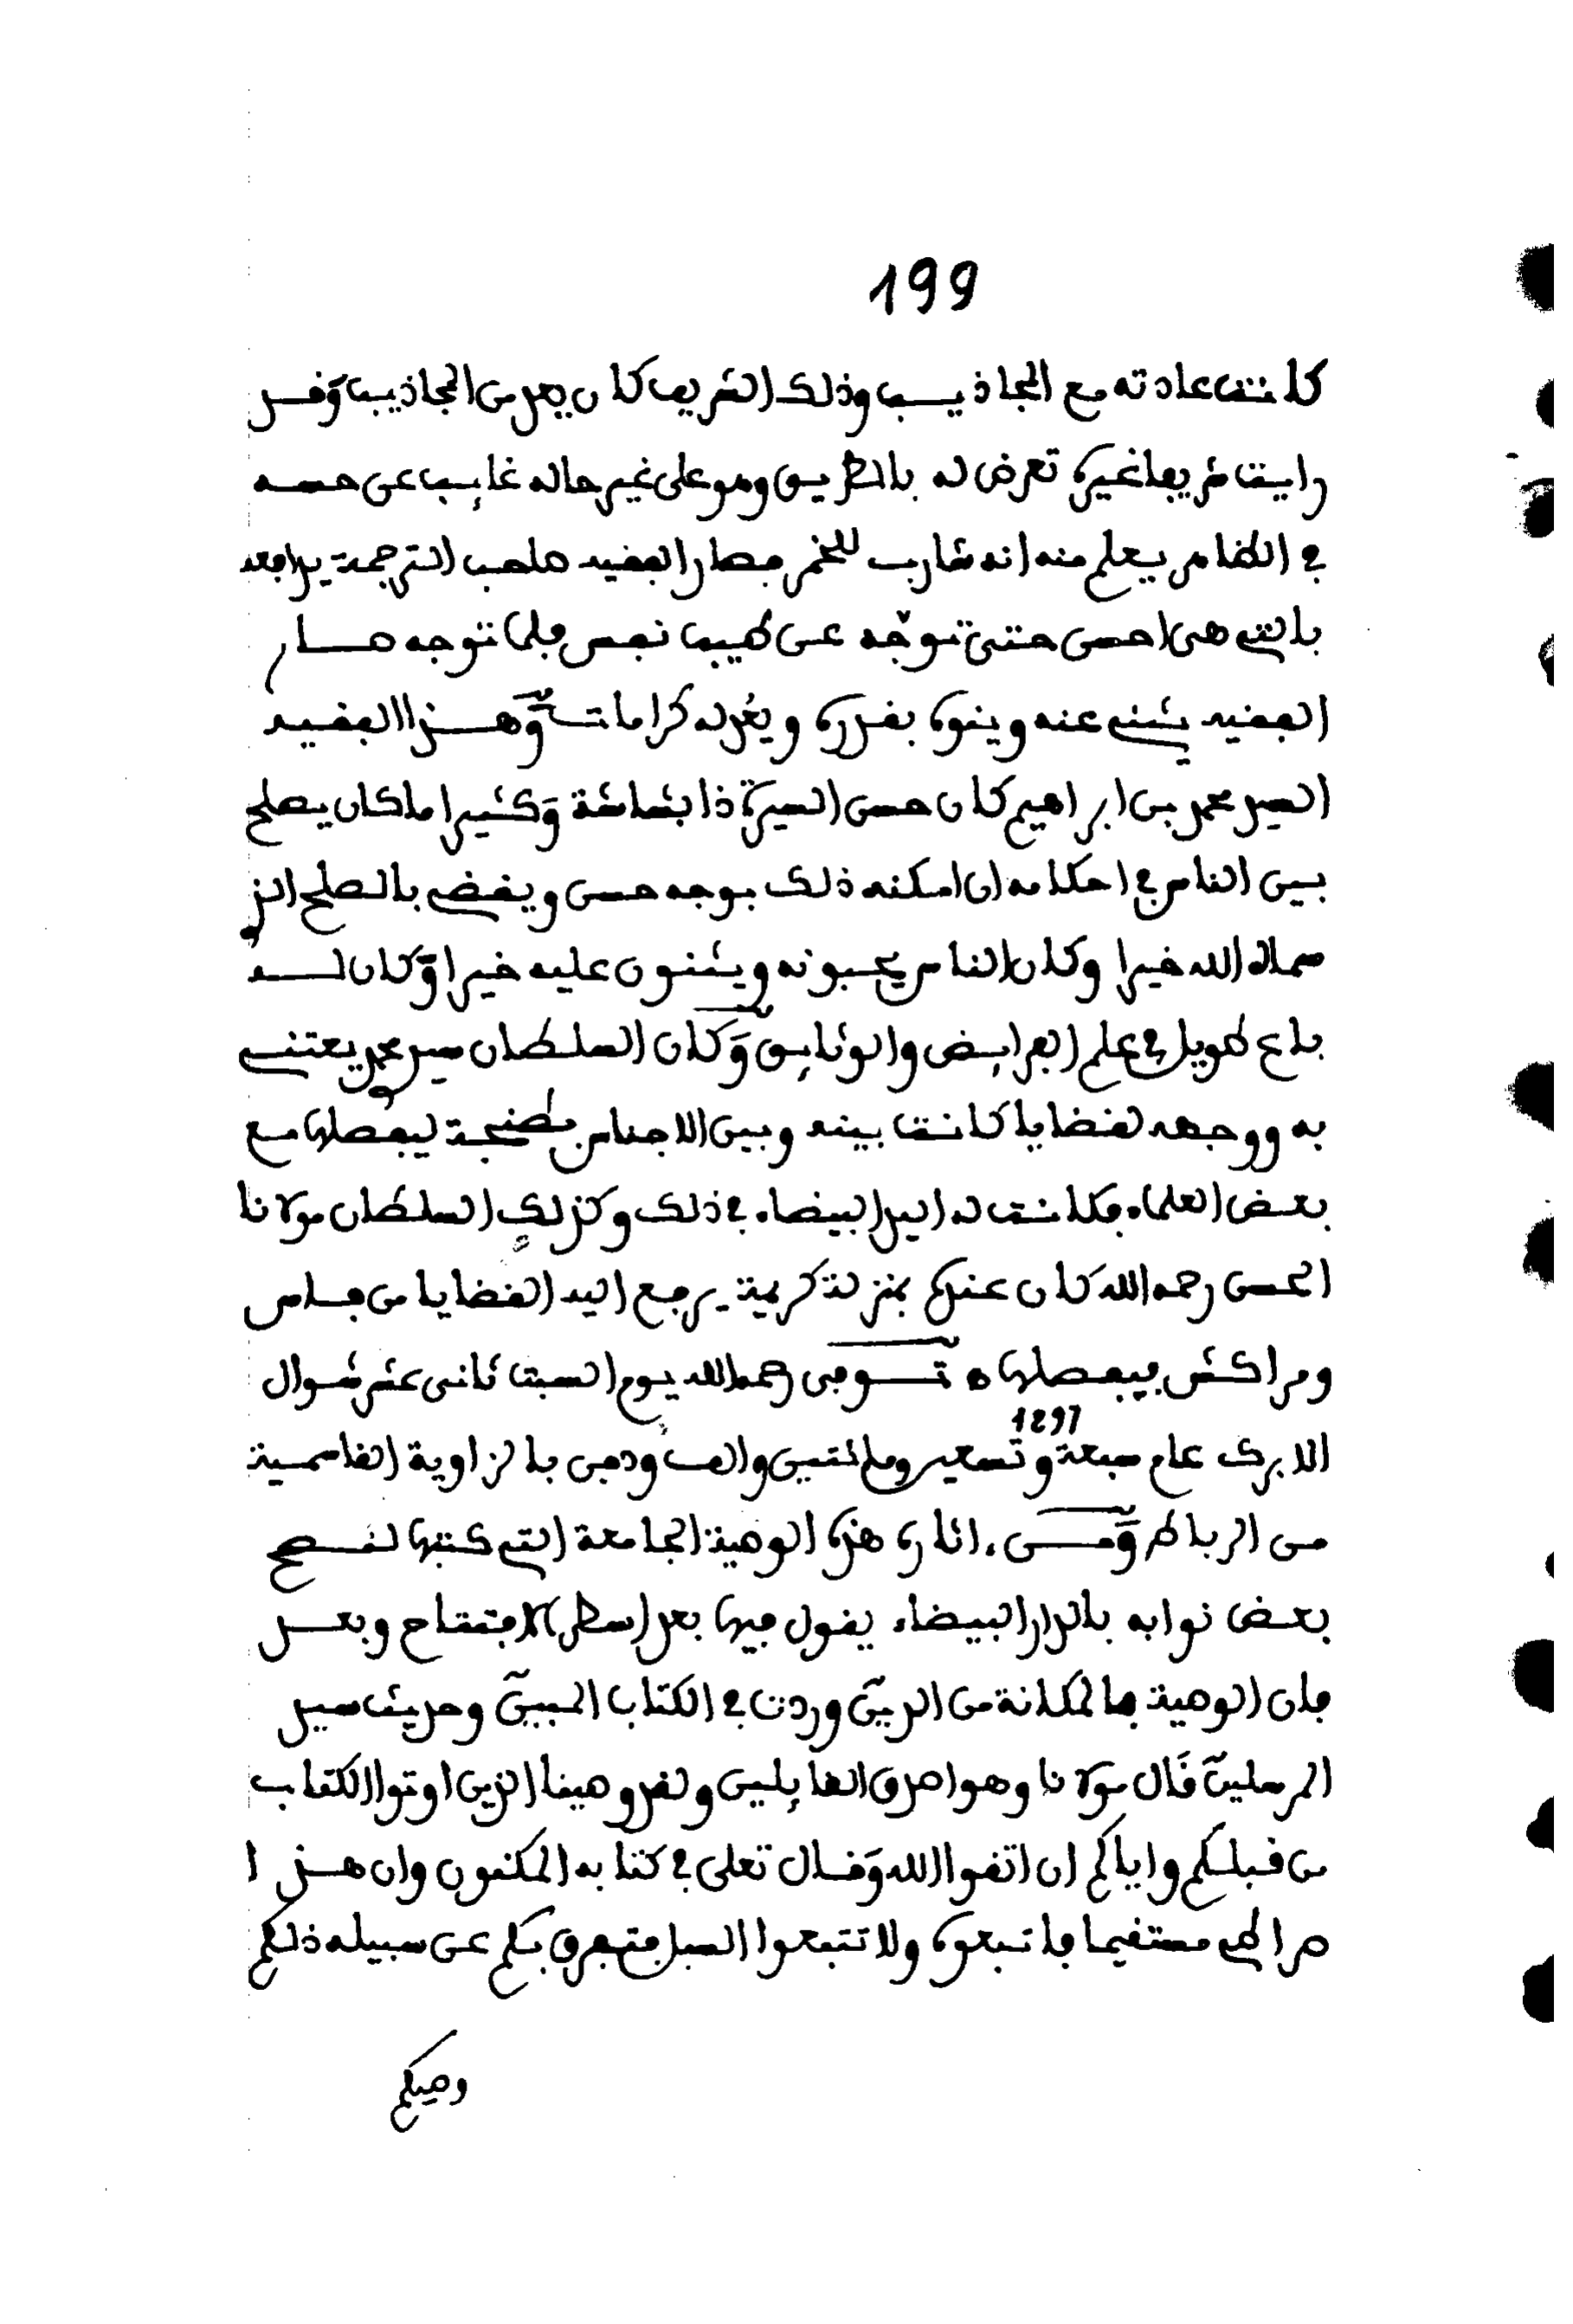 199
كانت عادته مع المجاذيب وذلك الشريف كان يعد من المجاذيب وقد
رايت شريفا غيره تعرض له بالطريق وهو على غير حاله غايب عن حسه
في الظاهر يعلم منه انه شارب للخمر فصار الفقيه صاحب الترجمة يدافعه
بالتي هي احسن حتى توجه عن طيب نفس فلما توجه صار
الفقيه يثني عنه وينوه بقدره ويعد له كرامات وهذا الفقيه
السيد محمد بن ابراهيم كان حسن السيرة ذا بشاشة وكثيرا ما كان يصلح
بين الناس في احكامه ان امكنه ذلك بوجه حسن ويقضي بالصلح الذي
سماه الله خيرا وكان الناس يحبونه ويثنون عليه خيرا وكان لـــه
باع طويل في علم الفرايض والوثايق وكان السلطان سيدي محمد يعتني
به ووجهه لقضايا كانت بينه وبين الاجناس بطنجة ليفصلها مع
بعض العلماء فكانت له اليد البيضاء في ذلك وكذلك السلطان مولانا
الحسن رحمه الله كان عنده بمنزلة كريمة يرجع اليه القضايا من فاس
ومراكش فيفصلها ه توفي رحمه الله يوم السبت ثاني عشر شوال
1297
الابرك عام سبعة وتسعين ومائتين والف ودفن بالزاوية القاسمية
من الرباط ومن ءاثاره هذه الوصية الجامعة التي كتبها لنصح
بعض نوابه بالدار البيضاء يقول فيها بعد اسطر الافتتاح وبعد
فان الوصية بها لمكانة من الدين وردت في الكتاب المبين وحديث سيد
المرسلين قال مولانا وهو اصدق القايلين ولقد وصينا الذين اوتوا الكتاب
من قبلكم واياكم ان اتقوا الله وقال تعلى في كتابه المكنون وان هذا
صراطي مستقيما فاتبعوه ولا تتبعوا السبل فتفرق بكم عن سبيله ذلكم
وصيكم